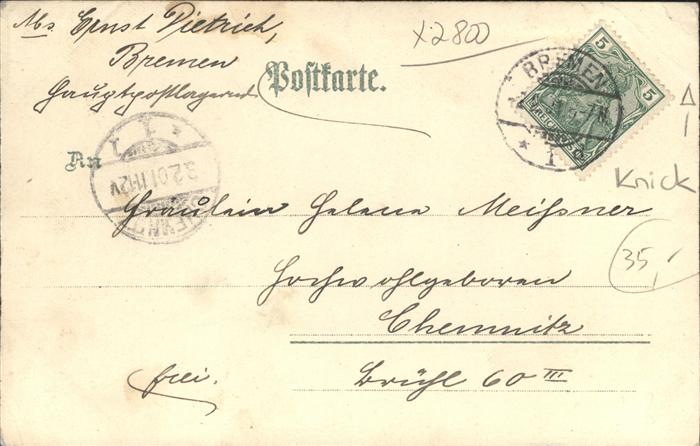 Abs. Ernst Dietrich,
Bremen
Hauptpostlagernd.
x2800
Postkarte.
BREMEN
1
5
5
An
3.2.01 11-12V
CHEMNITZ
Knick
Fräulein Helene Meißner
35,-
Hochwohlgeboren
Chemnitz
frei.
Brühl 60 III